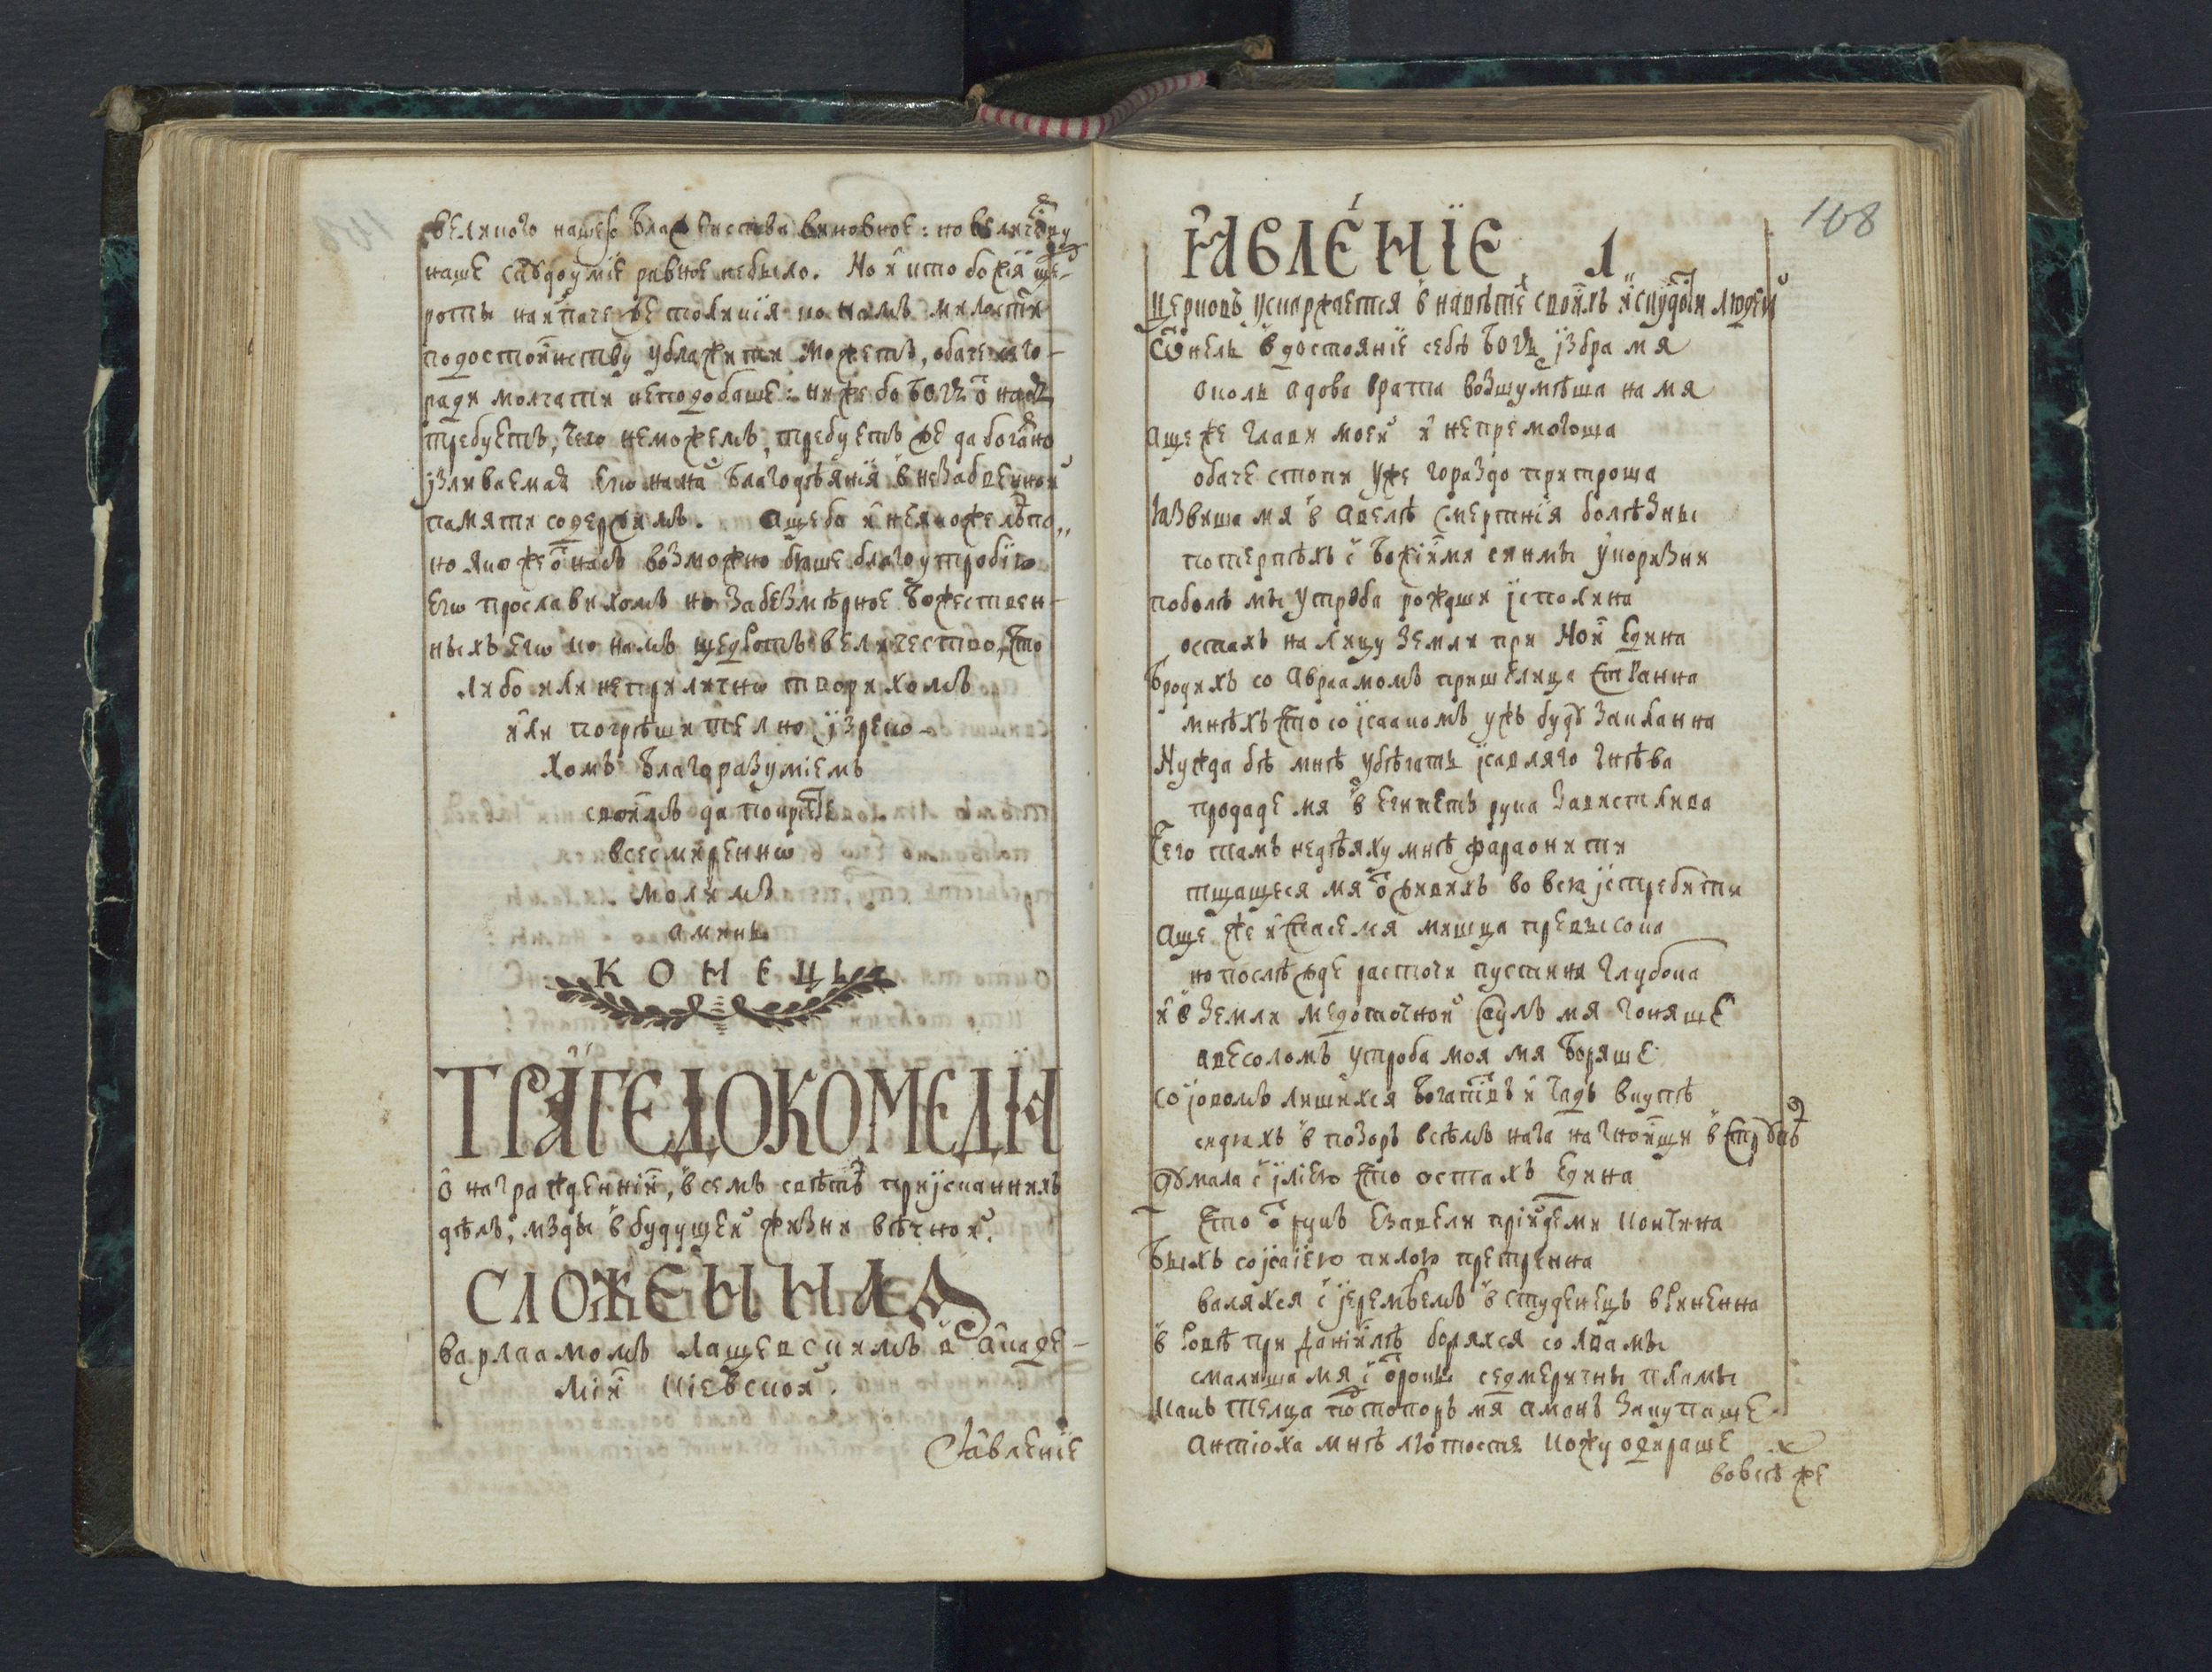 великого нашего блаженства виновное: но величеству
наше скудоуміе равное небыло. Но и кто божія ще-
роты наипаче же толикія ко намъ милости
подостоинству ублажити можетъ, обаче сего-
ради молчати неподобаше: ниже бо Богъ ѿ насъ
требуетъ, чего неможемъ, требуетъ же да богатно
изливаемая егѡ на на благодѣянія в незабвенной
памяти содержимъ. Аще бо и неякоже лѣпо,,
но якоже ѿ насъ возможно бяше благоутробіе
егѡ прославихомъ но за безмѣрное божествен-
ныхъ егѡ ко намъ щедротъ величество, Что
либо или неприлично творихомъ
или погрѣшително изреко-
хомъ благоразуміемъ
своимъ да покрыете
всесмиреннѡ
молимъ
аминь
КОНЕЦЪ
ТРАГЕДОКОМЕДІЯ
ѡ награжденніи, в семъ свѣтѣ приісканнихъ
дѣлъ, мзды в будущей жизни вѣчной.
СЛОЖЕННАЯ
варлаамомъ Лащевскимъ в Акаде-
міи Кіевской.
Явленіе
108
ЯВЛЕНІЕ 1
Церковъ ускаржается в навѣте своихъ и скудости людей
Ѿнель в достояніе себѣ Богъ ізбра мя
околь адова врата возшумѣша на мя
Аще же глави моей и непремогоша
обаче стопи уже гораздо притроша
Іазвиша мя в Авелѣ смертнія болѣзны
потерпѣхъ с Божіима синмы укоризни
поболѣ мы утроба рождши ісполина
остахъ на лицу земли при Нои едина
Бродихъ со Авраамомъ пришелица странна
мнѣхъ что со ісаакомъ ужъ буду закланна
Нужда бѣ мнѣ убѣгать ісавляго гнѣва
продаде мя в египетъ рука завистлива
Чего тамъ недѣяху мнѣ фараонити
тщащеся мя ѿ живихъ во веки істребити
Аще же и спасе мя мишца превысока
но послѣжде растоги пустиня глубока
и в земли медоточной Саулъ мя гоняше
авесоломъ утроба моя мя боряше
Со іовомъ лишихся богатствъ и чадъ вкупѣ
сидяхъ в позоръ всѣмъ нага на гноищи в струпѣ
Ѳумала с іліею что остахъ едина
Что ѿ рукъ Езавели пріидеми кончина
Быхъ со ісаіею пилою претренна
валяхся с іеремѣемъ в студенець вкиненна
в ровѣ при Даніилѣ боряхся со лвамы
смалиша мя с ѿроки седмеричны пламы
Какъ телца по топоръ мя аманъ закупаше
Антіоха мнѣ лютостя кожу одираше
вовсѣ же